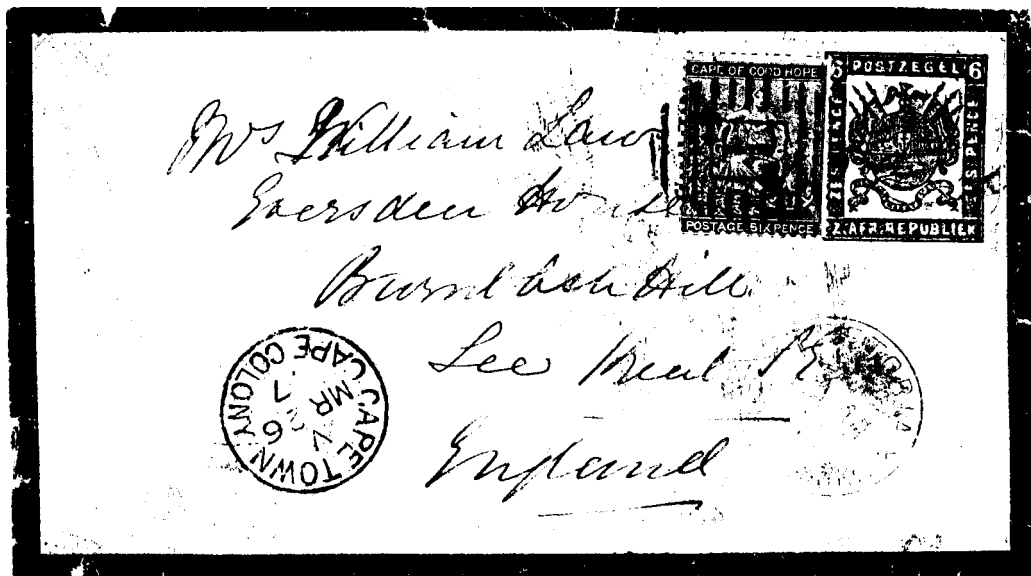 CAPE OF GOOD HOPE
POSTAGE SIXPENCE
6 POSTZEGEL 6
ZES PENCE
ZES PENCE
Z. AFR. REPUBLIEK
Mrs William Law
Eversden House
Burnt Ash Hill
Lee Kent
England
CAPE TOWN. CAPE COLONY
MR
7